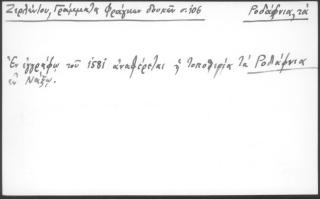 Ζερλέντου, Γράμματα Φράγκων δουκῶν σ. 106
Ροδάφνια, τά
Ἐν ἐγγράφῳ τοῦ 1581 ἀναφέρεται ἡ τοποθεσία τά Ροδάφνια
ἐν Νάξῳ.